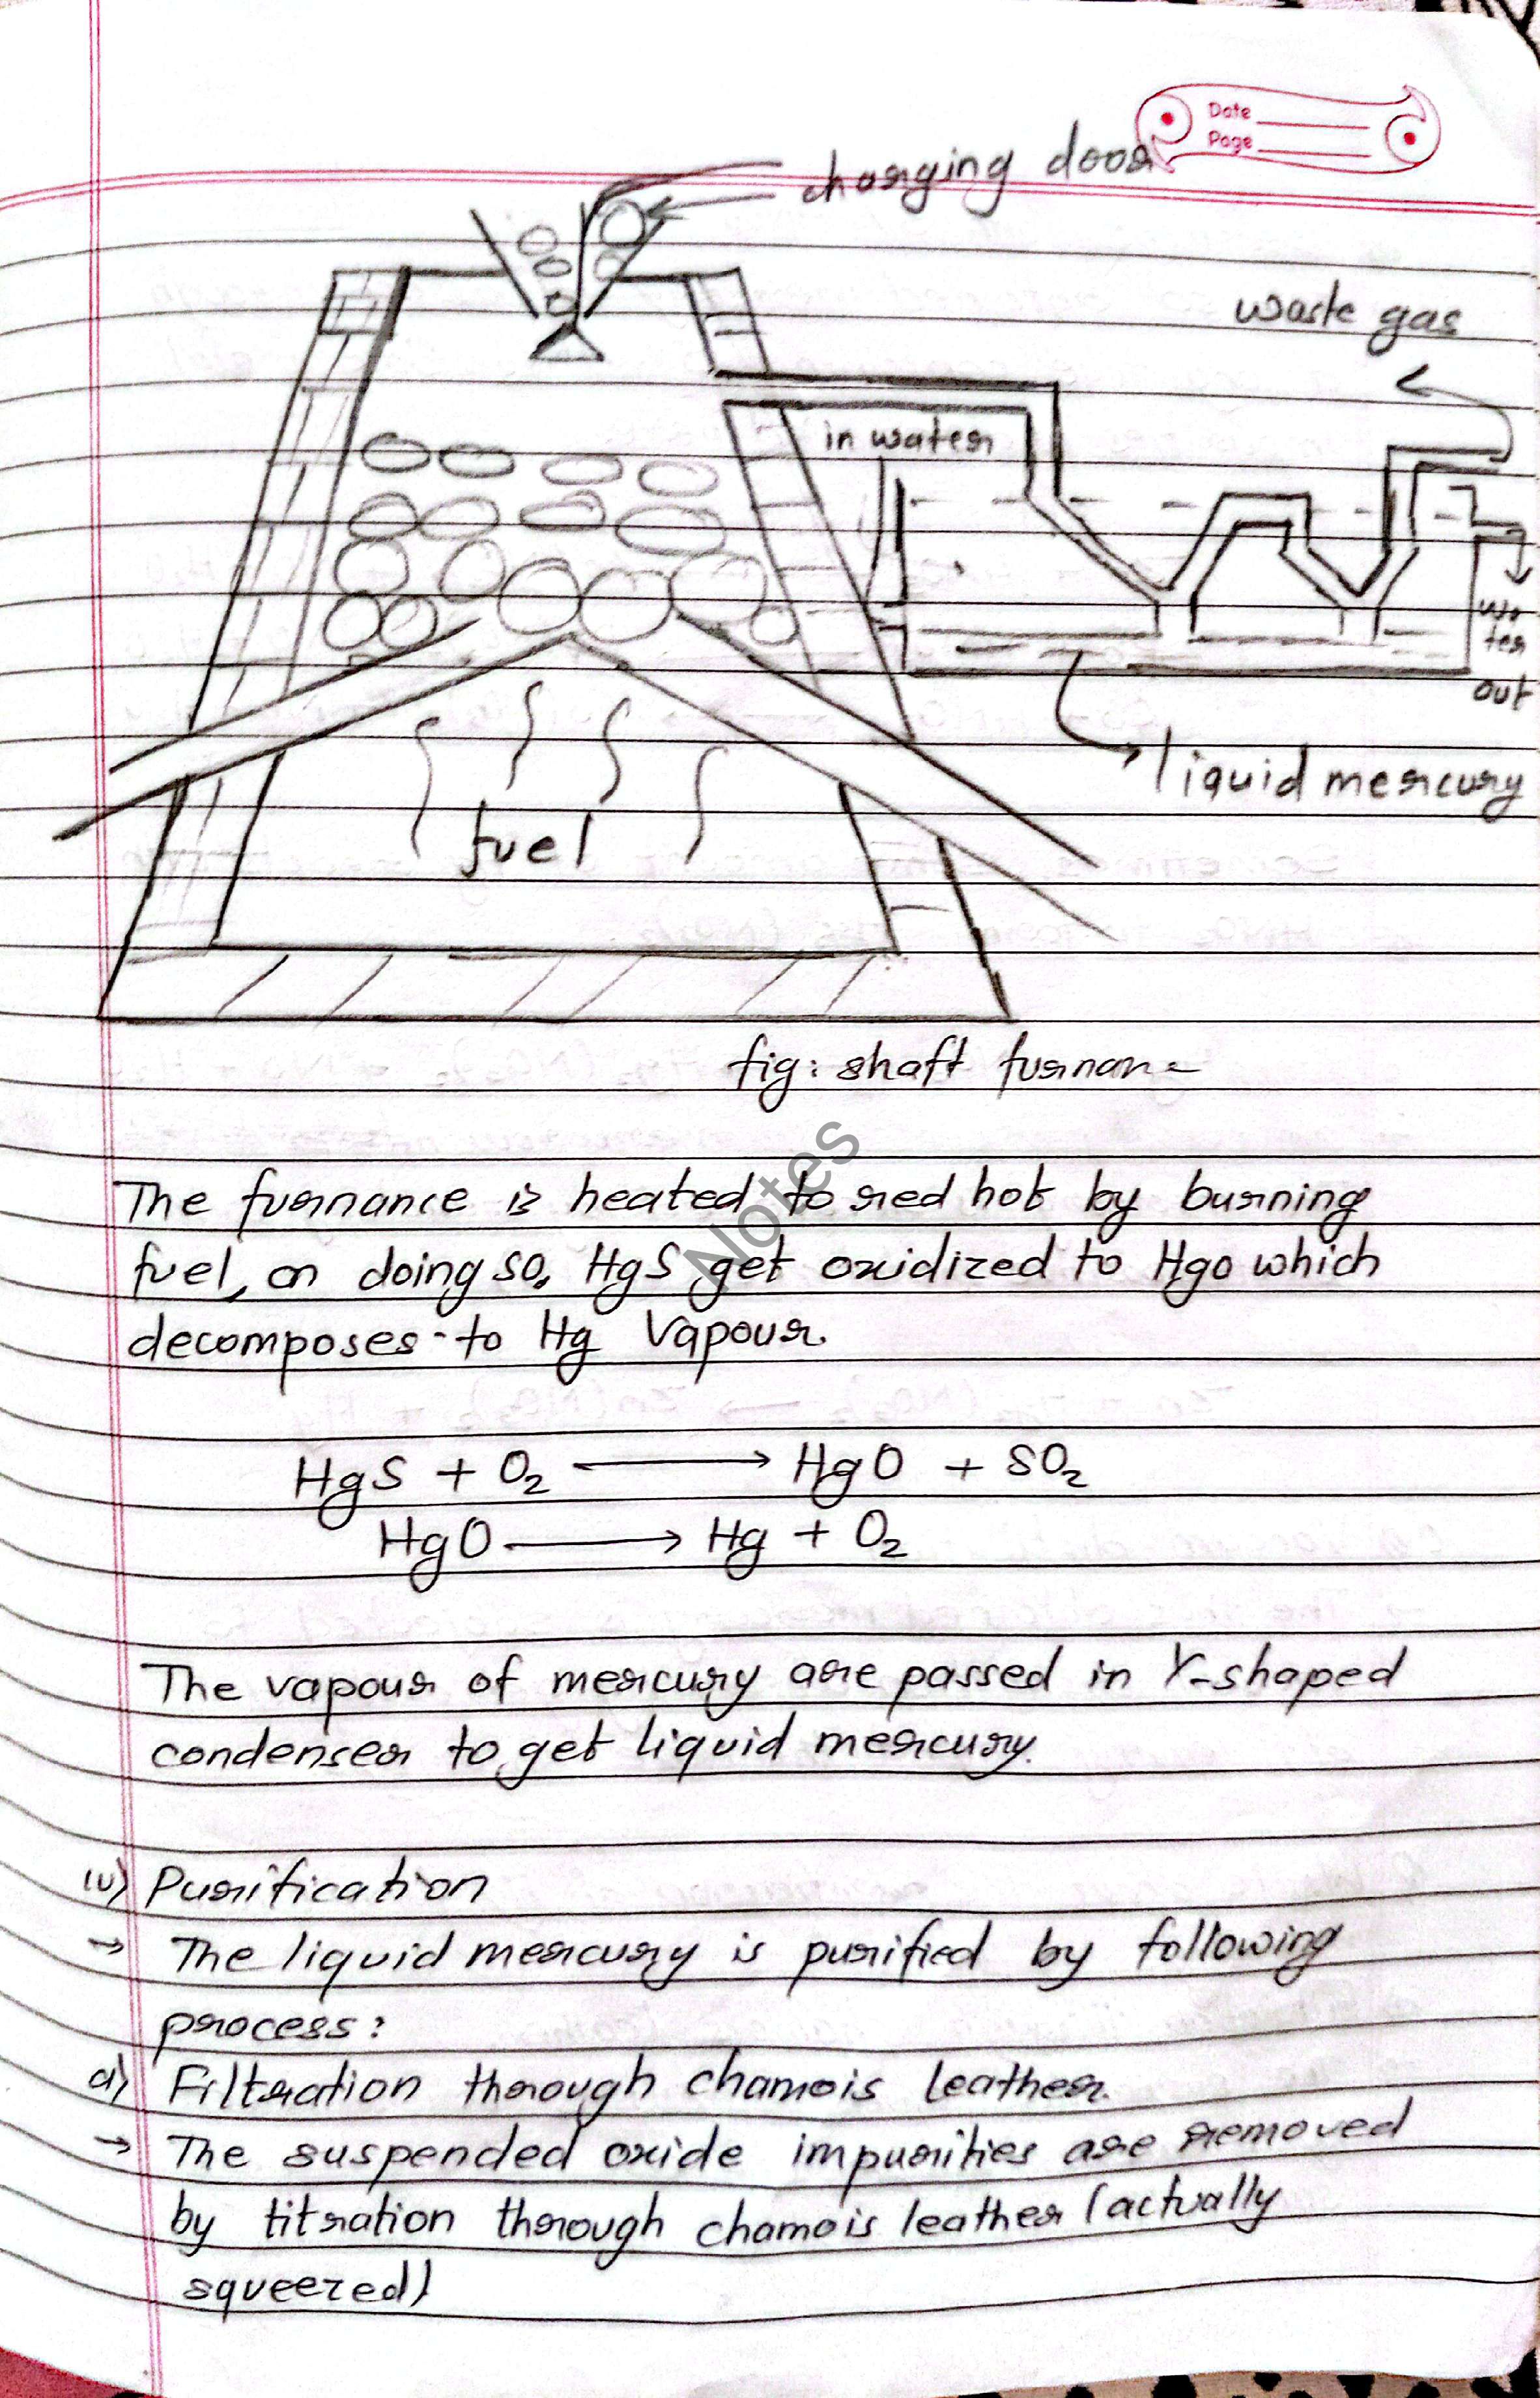 Date
Page
charging door
waste gas
in water
wa
ter
out
liquid mercury
fuel
fig: shaft furnan
Notes
The furnance is heated to red hot by burning
fuel, on doing so, HgS get oxidized to HgO which
decomposes to Hg Vapour.
HgS + O₂ ⟶ HgO + SO₂
HgO ⟶ Hg + O₂
The vapour of mercury are passed in Y-shaped
condenser to get liquid mercury.
Purification
→ The liquid mercury is purified by following
process:
a) Filtration through chamois leather.
→ The suspended oxide impurities are removed
by titration through chamois leather (actually
squeezed)